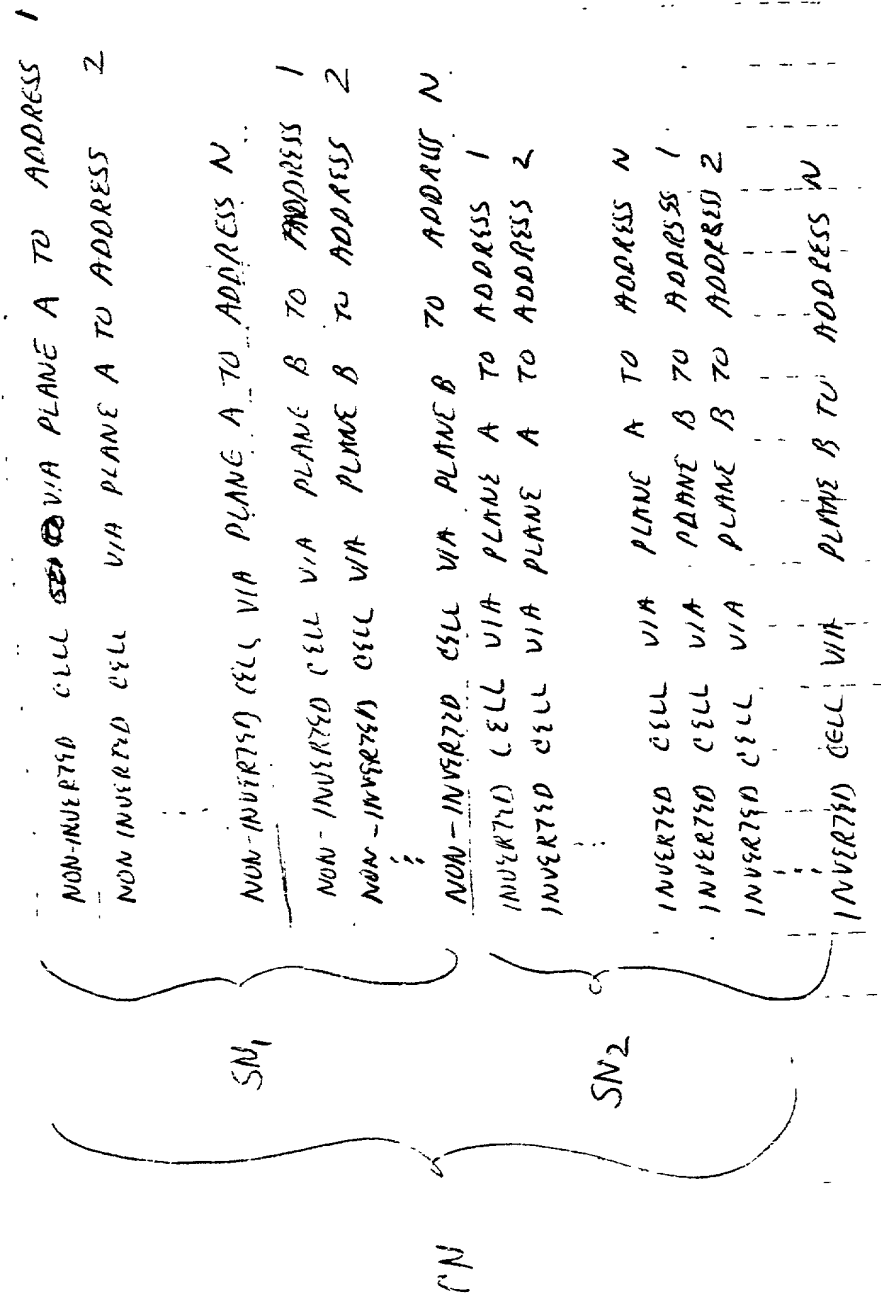 NON-INVERTED CELL VIA PLANE A TO ADDRESS 1
NON INVERTED CELL VIA PLANE A TO ADDRESS 2
NON-INVERTED CELL VIA PLANE A TO ADDRESS N
NON-INVERTED CELL VIA PLANE B TO ADDRESS 1
NON-INVERTED CELL VIA PLANE B TO ADDRESS 2
NON-INVERTED CELL VIA PLANE B TO ADDRESS N
SN1
INVERTED CELL VIA PLANE A TO ADDRESS 1
INVERTED CELL VIA PLANE A TO ADDRESS 2
INVERTED CELL VIA PLANE A TO ADDRESS N
INVERTED CELL VIA PLANE B TO ADDRESS 1
INVERTED CELL VIA PLANE B TO ADDRESS 2
INVERTED CELL VIA PLANE B TO ADDRESS N
SN2
CN